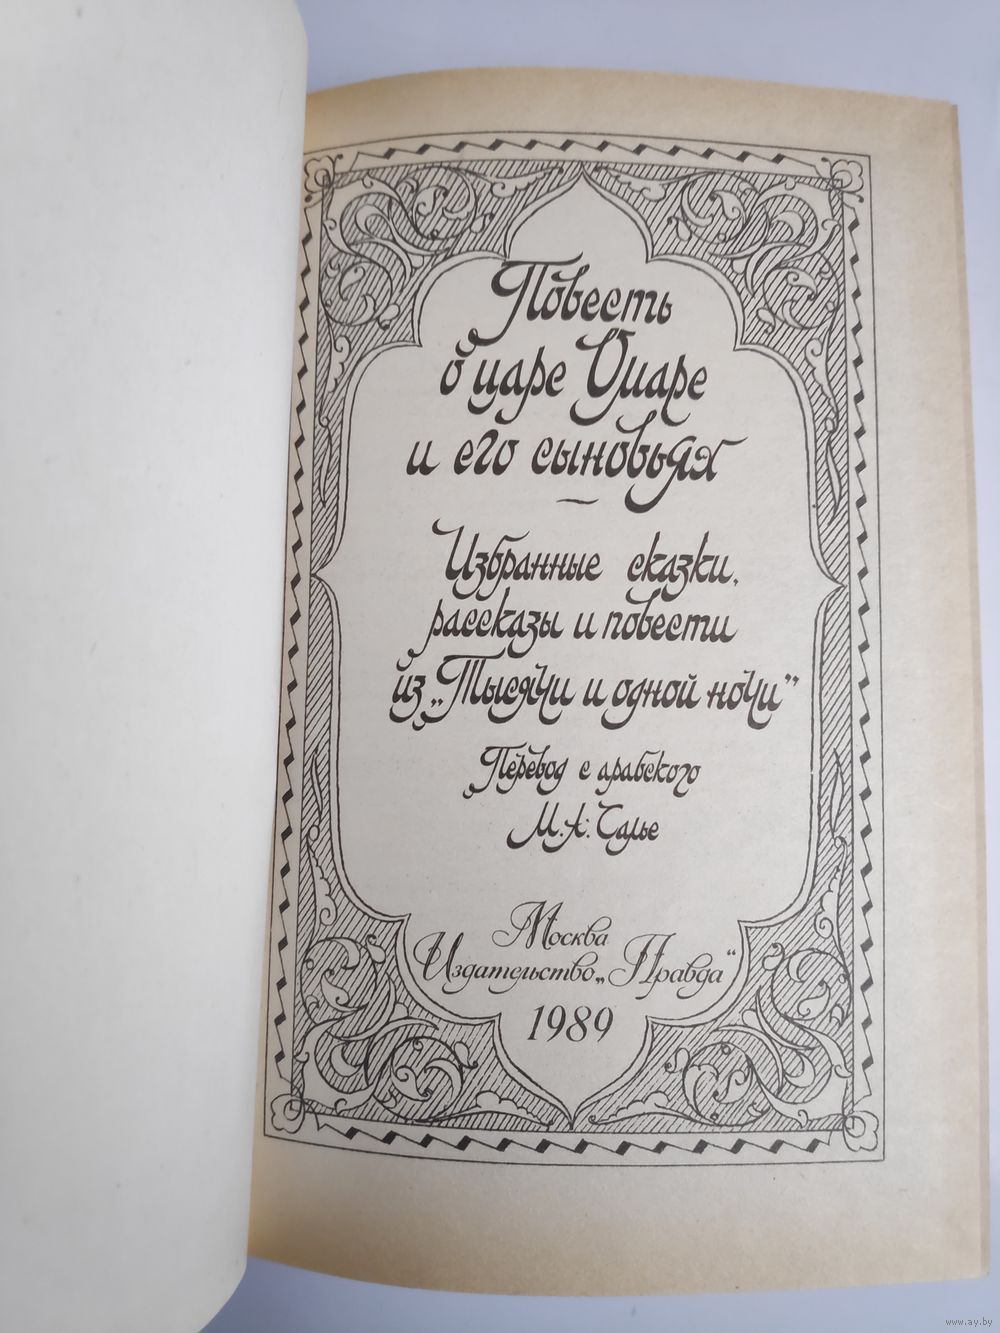 Повесть
о царе Омаре
и его сыновьях
—
Избранные сказки,
рассказы и повести
из „Тысячи и одной ночи”
Перевод с арабского
М. А. Салье
Москва
Издательство „Правда“
1989
www.ay.by